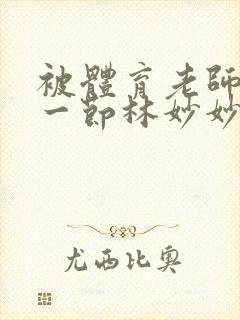 被體育老師
一節林妙妙
尤西比奧